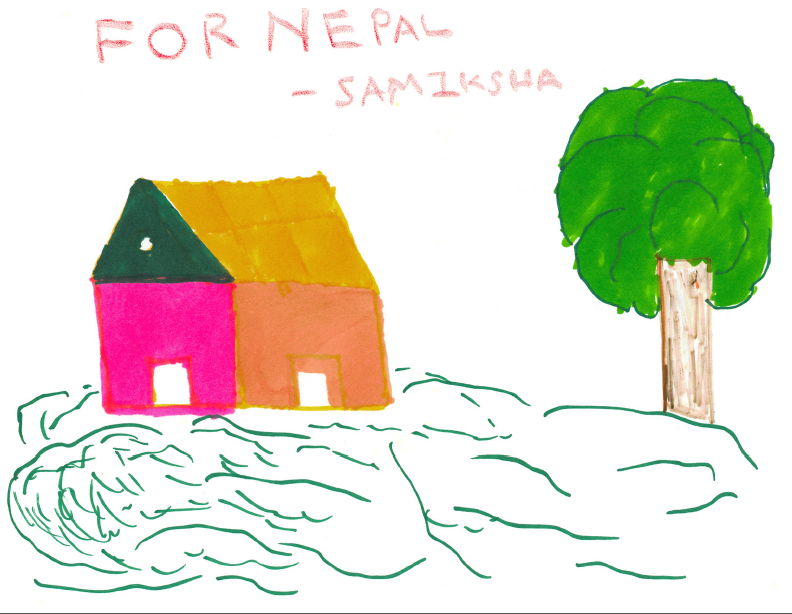 FOR NEPAL
- SAMIKSHA